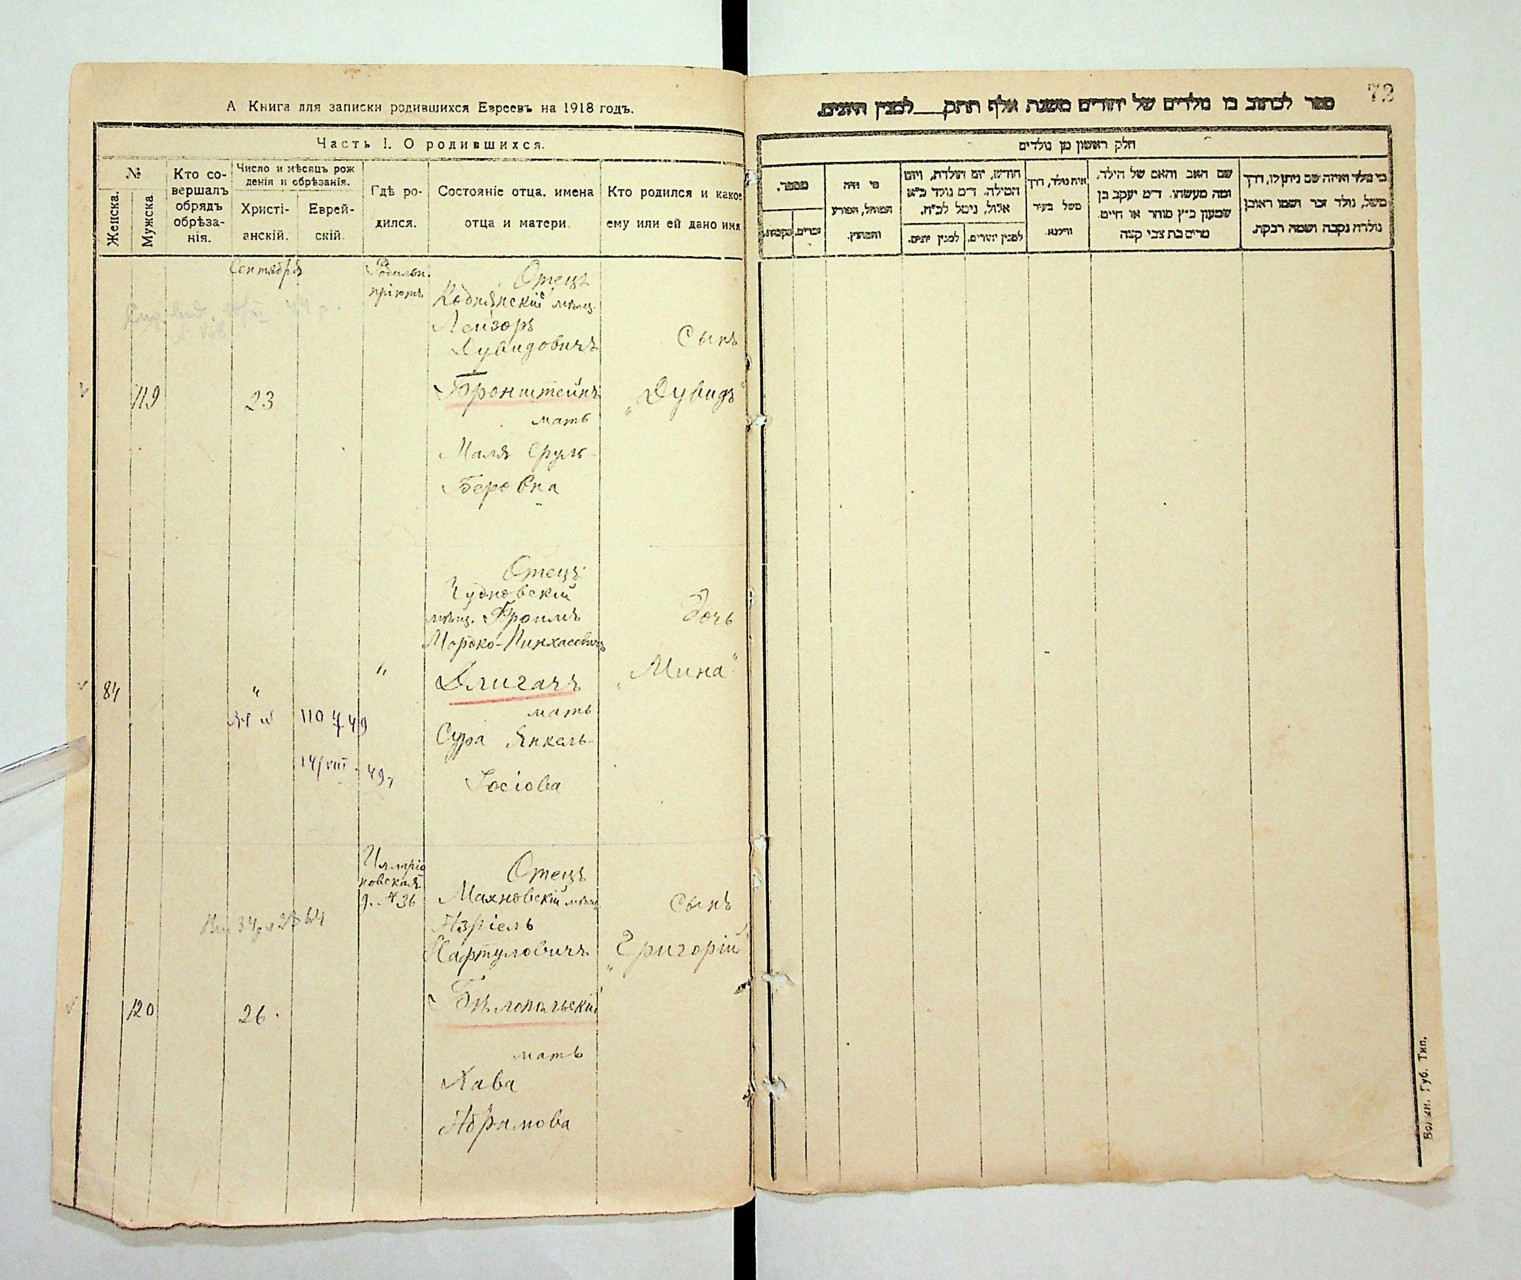 А Книга для записки родившихся Евреевъ на 1918 годъ.
Часть I. О родившихся.
№
Женска.
Мужска
Кто со-
вершалъ
обрядъ
обрѣза-
нія.
Число и мѣсяцъ рож
денія и обрѣзанія.
Христі-
анскій.
Еврей-
скій.
Гдѣ ро-
дился.
Состояніе отца, имена
отца и матери.
Кто родился и какое
ему или ей дано имя
Сентября
Родильн.
пріютъ
119
23
Отецъ
мѣщ.
Лейзоръ
Дувидовичъ
Бронштейнъ
мать
Маля Сруль-
Беровна
Сынъ
„Дувидъ"
84
"
"
Отецъ
Чудновскій
мѣщ. Фроимъ
Мордко-Пинхасовичъ
Длигачъ
мать
Сура Янкель-
Іосіова
Дочь
„Мина"
14/VIII - 49
120
26.
Илларіо
новская
д. № 36
Отецъ
Махновскій мѣщ
Азріелъ
Нартуловичъ
Бѣлопольскій
мать
Хава
Абрамова
Сынъ
„Григорій"
72
ספר לכתוב בו נולדים של יהודים משנת אלף תתק__ למנין היונים.
חלק ראשון מן נולדים
מספר.
נקבות.
זכרים.
מי היה
המוהל, הפורע
והמוצץ.
חודש, יום הולדת, ויום
המילה. ד״מ נולד כ״א
אלול, נימל לכ״ח.
למנין יונים.
למנין יהודים.
איה נולד, דרך
משל בעיר
ווילנא
שם האב והאם של הילד.
ומה מעשהו. ד״מ יעקב בן
שמעון כ״ץ סוחר או חייט.
מרים בת צבי קצה
מי נולד ואיזה שם ניתן לו, דרך
משל, נולד זכר ושמו ראובן
נולדה נקבה ושמה רבקה.
Волын. Губ. Тип.